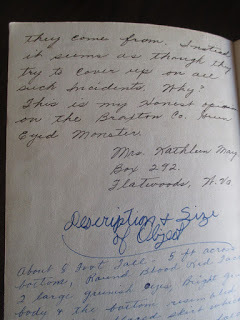 they come from. Instead
it seems as though they
try to cover up on all
such incidents. Why?
This is my honest opinion
on the Braxton Co. Green
Eyed Monster.
Mrs. Kathleen May
Box 292.
Flatwoods, W. Va.
Description & Size
of Object
About 8 Foot Tall. 5 ft across
bottom, Round Blood Red Face
2 large greenish eyes, Bright green
body & the bottom resembled